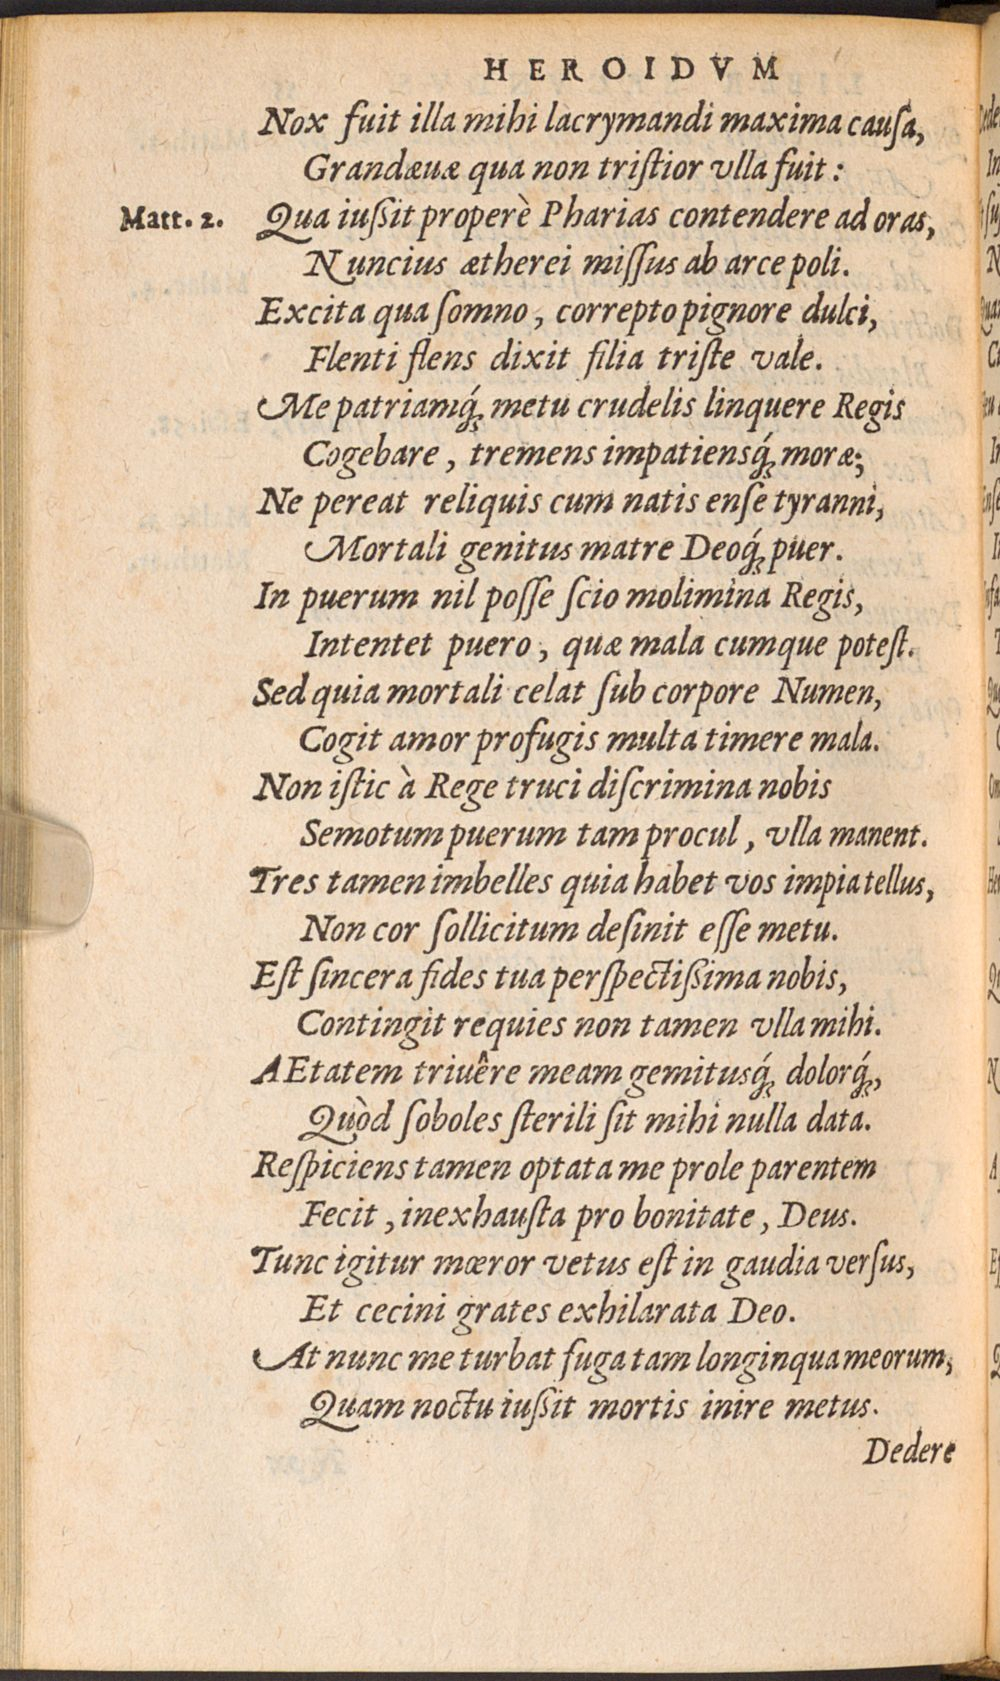 HEROIDVM
Nox fuit illa mihi lacrymandi maxima cauſa,
Grandæuæ qua non triſtior vlla fuit:
Matt. 2. Qua iuſsit properè Pharias contendere ad oras,
Nuncius ætherei miſſus ab arce poli.
Excita qua ſomno, correpto pignore dulci,
Flenti flens dixit filia triſte vale.
Me patriamq́; metu crudelis linquere Regis
Cogebare, tremens impatiensq́; moræ;
Ne pereat reliquis cum natis enſe tyranni,
Mortali genitus matre Deoq́; puer.
In puerum nil poſſe ſcio molimina Regis,
Intentet puero, quæ mala cumque poteſt.
Sed quia mortali celat ſub corpore Numen,
Cogit amor profugis multa timere mala.
Non iſtic à Rege truci diſcrimina nobis
Semotum puerum tam procul, vlla manent.
Tres tamen imbelles quia habet vos impia tellus,
Non cor ſollicitum deſinit eſſe metu.
Eſt ſincera fides tua perſpectiſsima nobis,
Contingit requies non tamen vlla mihi.
AEtatem triuêre meam gemitusq́; dolorq́;,
Quòd ſoboles ſterili ſit mihi nulla data.
Reſpiciens tamen optata me prole parentem
Fecit, inexhauſta pro bonitate, Deus.
Tunc igitur mœror vetus eſt in gaudia verſus,
Et cecini grates exhilarata Deo.
At nunc me turbat fuga tam longinqua meorum,
Quam noctu iuſsit mortis inire metus.
Dedere